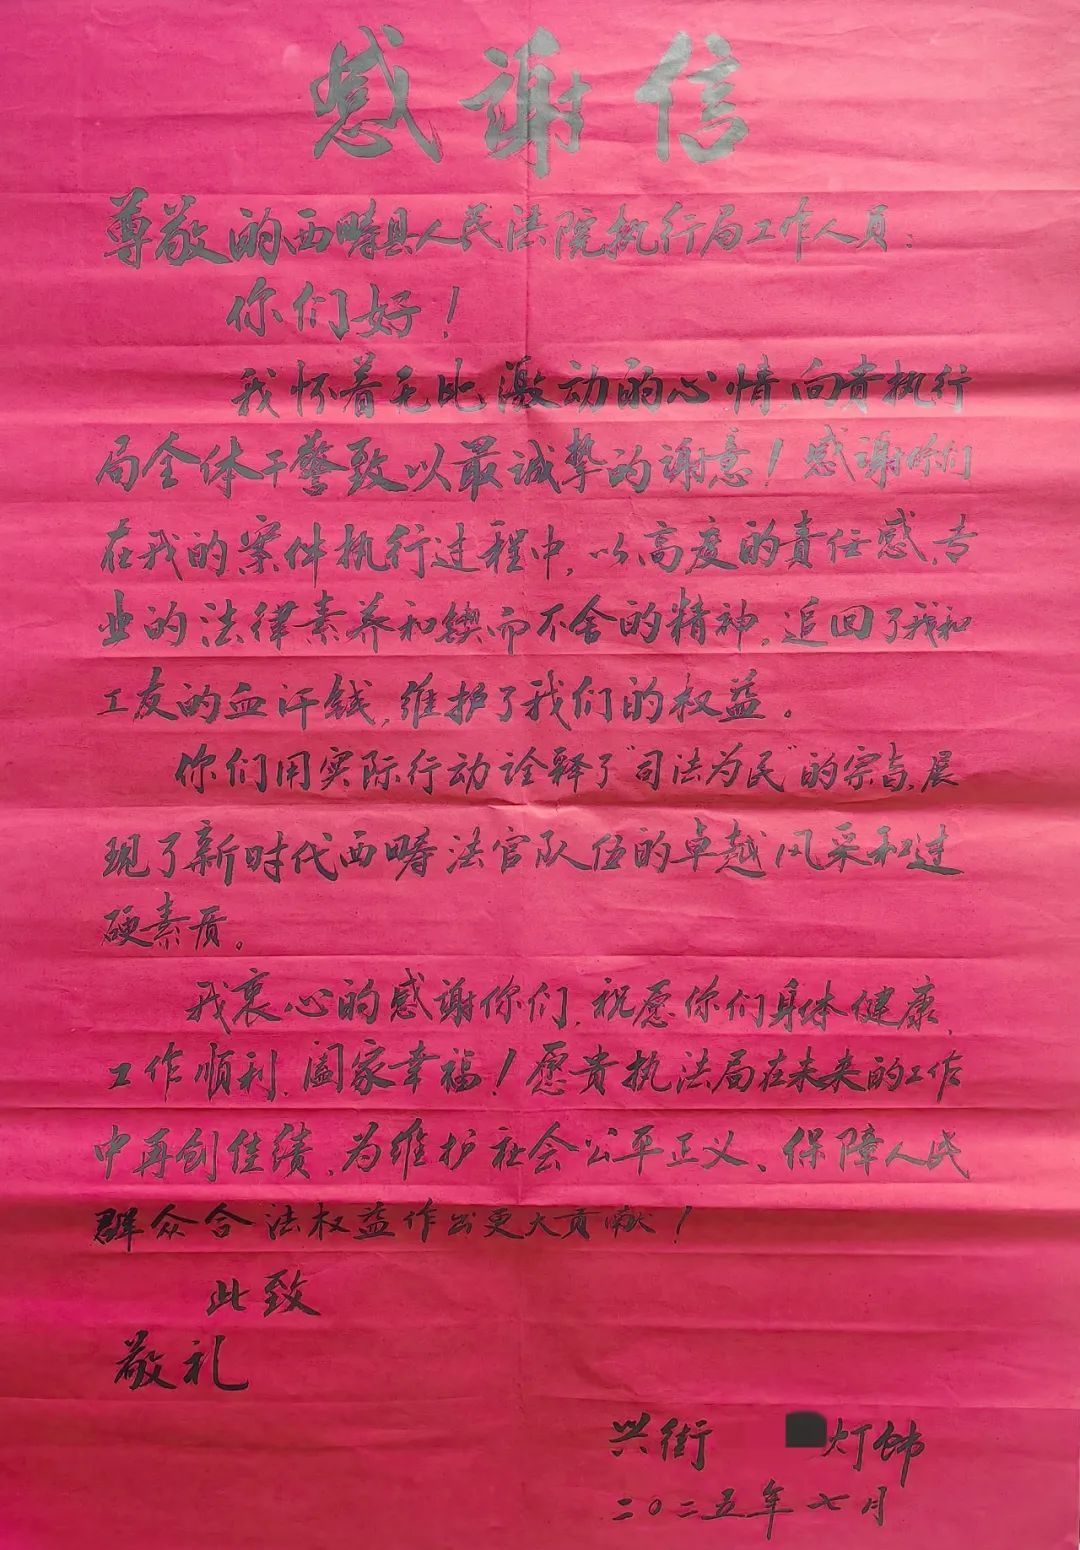 感谢信
尊敬的西畴县人民法院执行局工作人员：
你们好！
我怀着无比激动的心情,向贵执行
局全体干警致以最诚挚的谢意！感谢你们
在我的案件执行过程中,以高度的责任感,专
业的法律素养和锲而不舍的精神,追回了我和
工友的血汗钱,维护了我们的权益。
你们用实际行动诠释了“司法为民”的宗旨,展
现了新时代西畴法官队伍的卓越风采和过
硬素质。
我衷心的感谢你们,祝愿你们身体健康,
工作顺利,阖家幸福！愿贵执法局在未来的工作
中再创佳绩,为维护社会公平正义、保障人民
群众合法权益作出更大贡献！
此致
敬礼
兴街 灯饰
二〇二五年七月